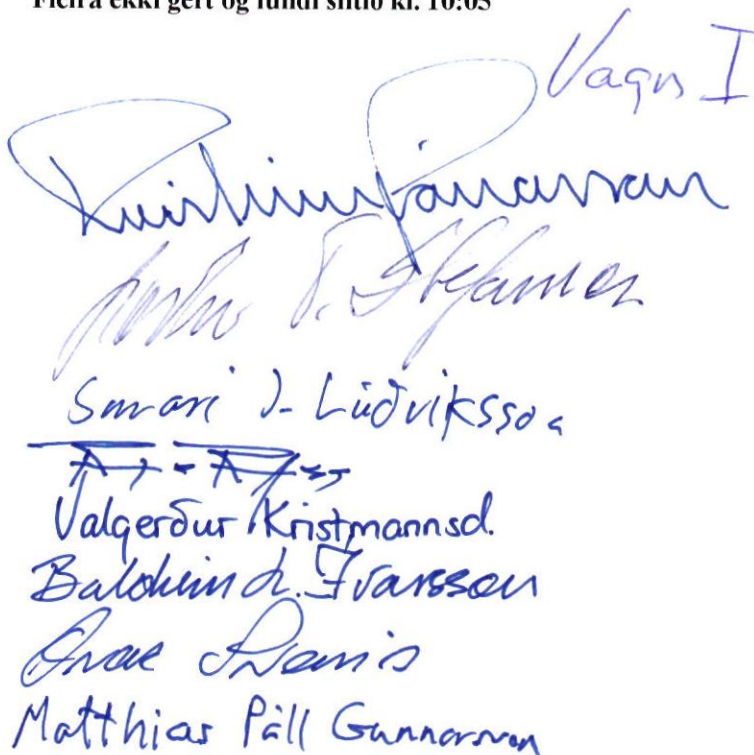 Fleira ekki gert og fundi slitið kl. 10:05
Vagn I
Kristinn Jónasson
Stefánsson
Smári J- Lúðvíksson
Valgerður Kristmannsd.
Baldvin L. Ívarsson
Matthías Páll Gunnarsson